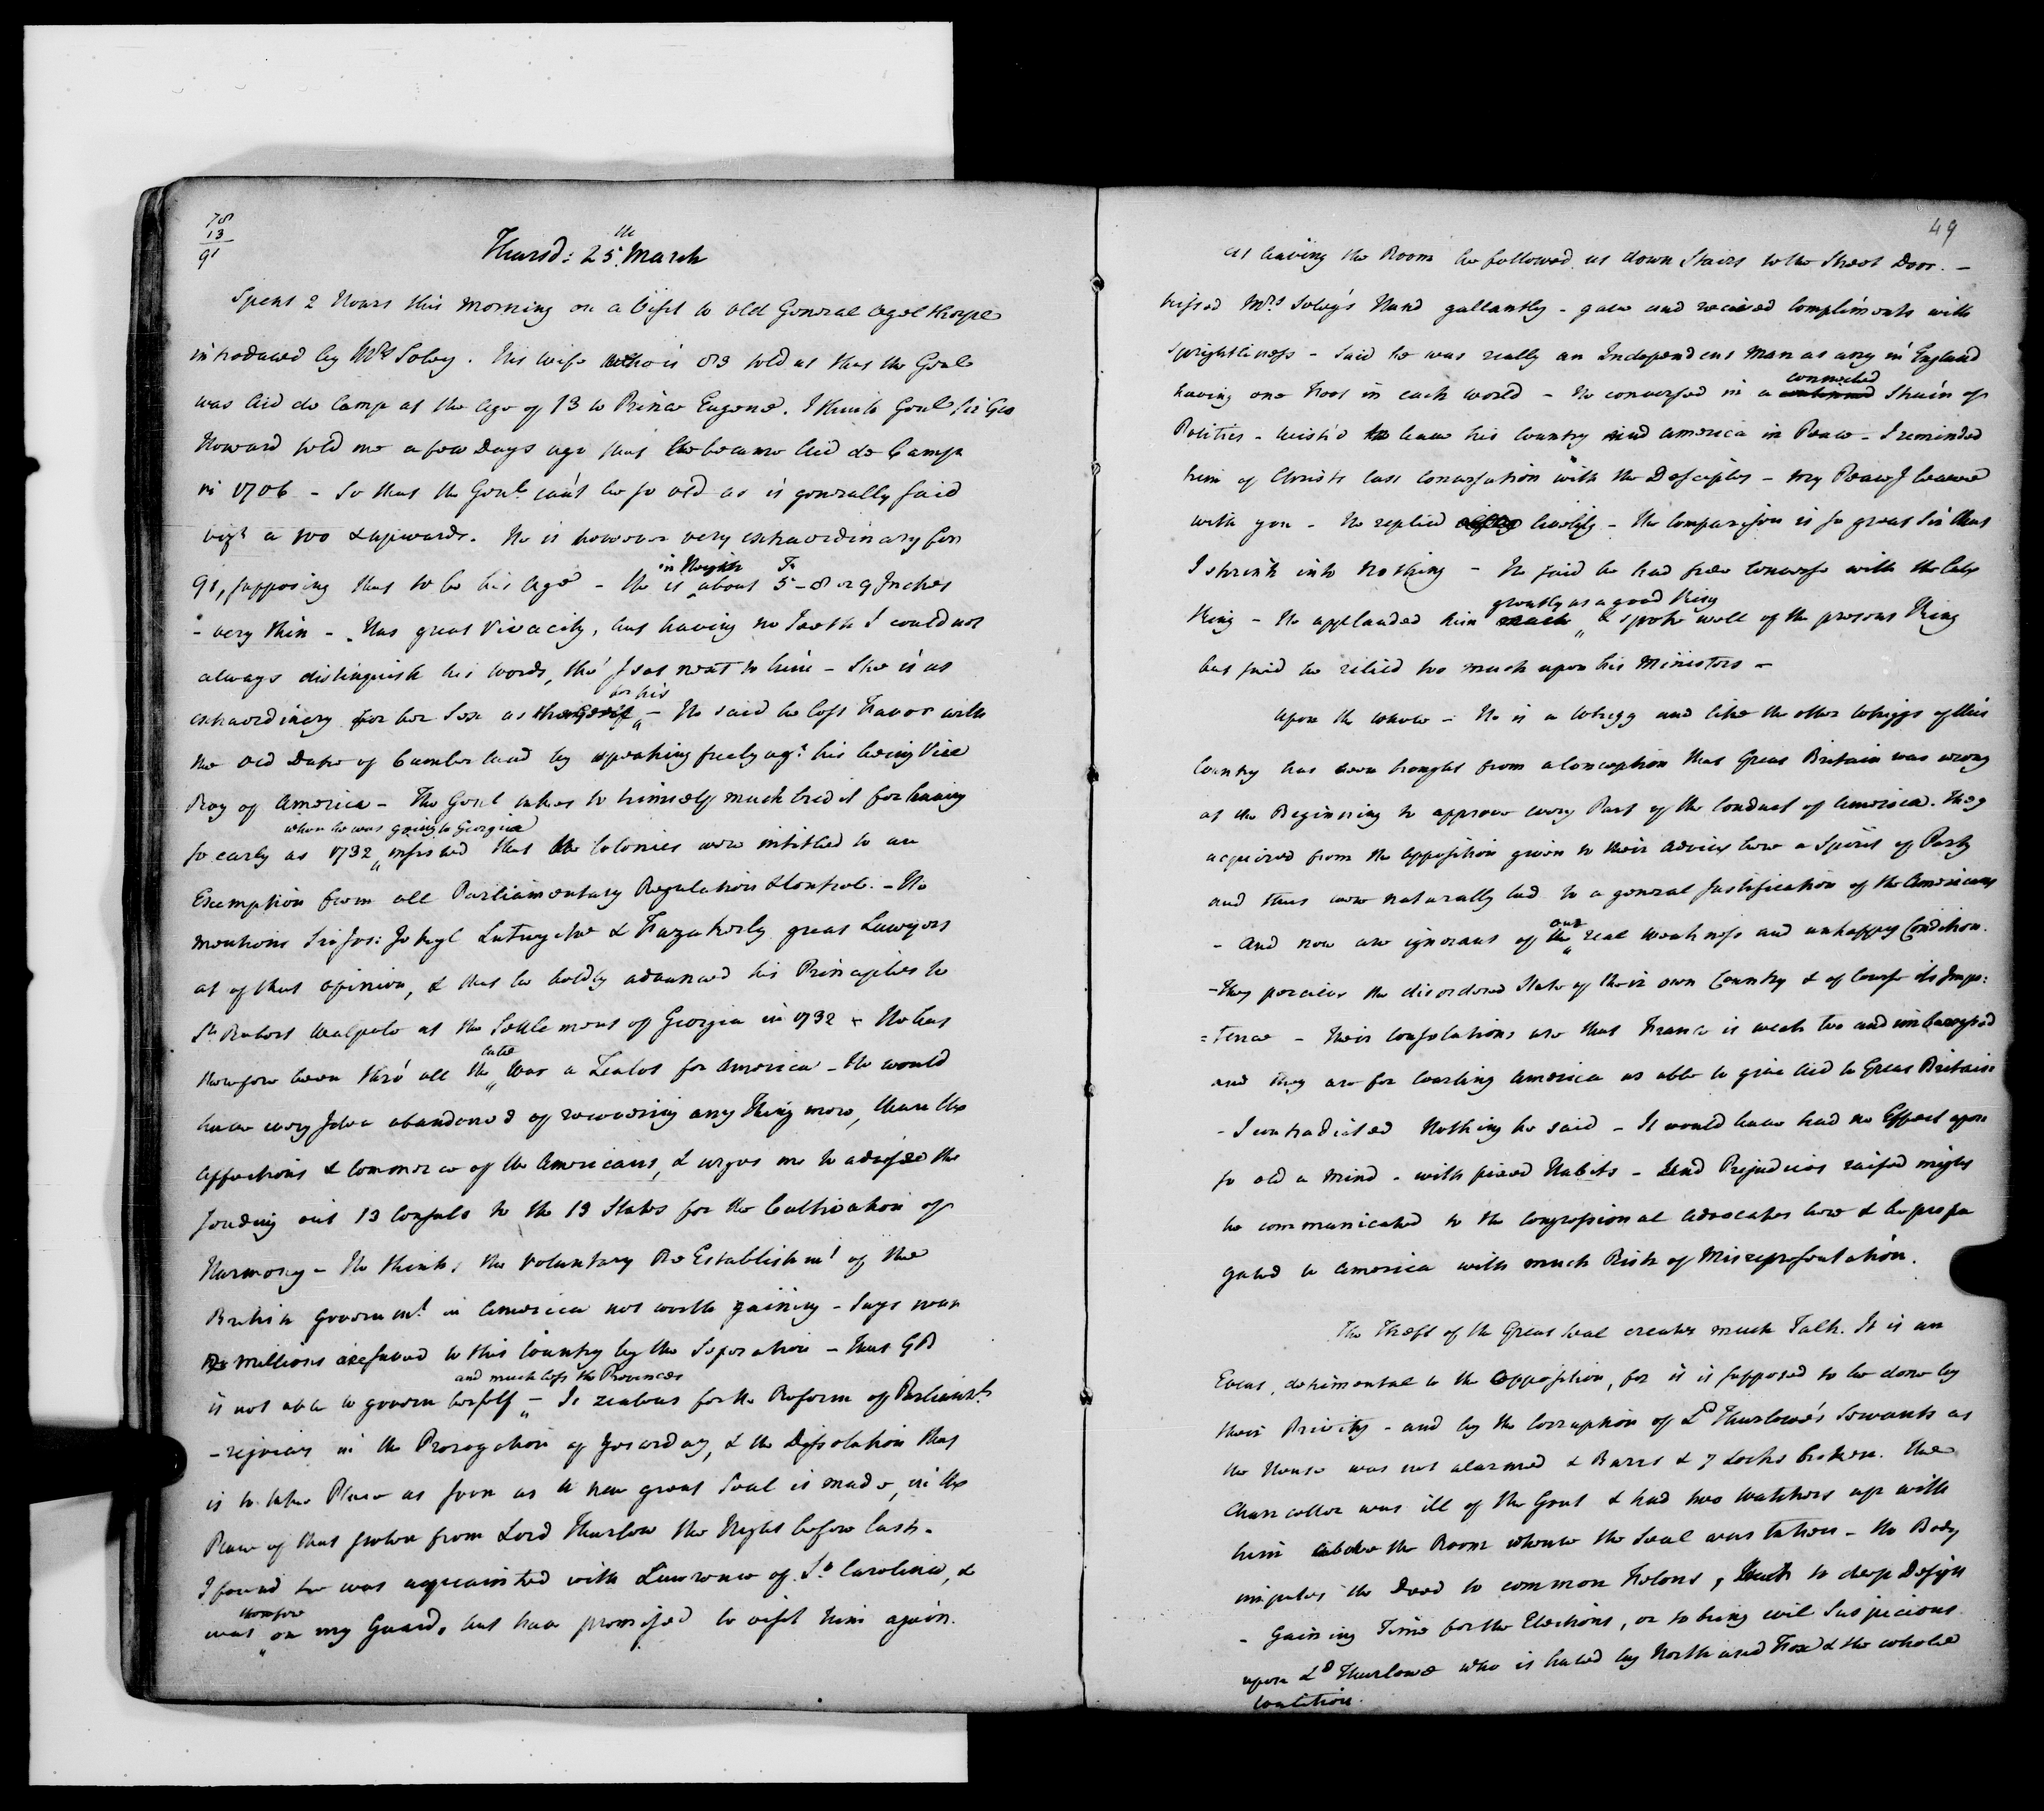 78
13
91
Thursd: 25th March
Spent 2 Hours this Morning on a Visit to old General Ogelthorpe
introduced by Mrs Soley. His wife who is 83 told us that the Genl
was Aid de Camp at the Age of 13 to Prince Eugene. I think Genl Sir Geo
Howard told me a few Days ago that he became Aid de Camp
in 1706 - So that the Genl can't be so old as is generally said
vizt a 100 & upwards. He is however very extraordinary for
91, supposing that to be his Age - He is in Heighth about 5 F - 8 or 9 Inches
- very thin - Has great Vivacity, but having no Teeth I could not
always distinguish his words, tho' I sat next to him - She is as
extraordinary for her Sex as for his - He said he lost Favor with
the old Duke of Cumberland by speaking freely agt his being Vice
Roy of America - The Genl takes to himself much Credit for having
so early as 1732 when he was going to Georgia insisted that the Colonies were intitled to an
Exemption from all Parliamentary Regulation & Controle. - He
mentions Sir Jos: Jekyl Lutwyche & Fazakerly great Lawyers
as of that opinion, & that he boldly advanced his Principles to
Sr Robert Walpole at the Settlement of Georgia in 1732 - He has
therefore been thro' all the late War a Zealot for America - He would
have every Idea abandoned of recovering any Thing more, than the
Affections & Commerce of the Americans, & urges me to advise the
sending out 13 Consuls to the 13 States for the Cultivation of
Harmony - He thinks the voluntary Re Establishmt of the
British Governmt in America not worth gaining - Says near
Millions are saved to this Country by the Separation - that GB
is not able to govern herself and much less the Provinces - Is zealous for the Reform of Parliamt
- rejoices in the Prorogation of Yesterday, & the Dissolution that
is to take Place as soon as a new great Seal is made, in the
Place of that stolen from Lord Thurlow the Night before last -
I found he was acquainted with Lawrence of So Carolina, &
was therefore on my Guard, but have promised to visit him again.
49
At leaving the Room he followed us down Stairs to the Street Door. -
kissed Mrs Soley's Hand gallantly - gave and recieved Compliments with
Sprightliness - Said he was really an Independent Man as any in England
having one Foot in each World - He conversed in a connected Strain of
Politics - wish'd to leave his Country and America in Peace - I reminded
him of Christs last Conversation with the Desciples - My Peace I leave
with you - He replied hastily - The Comparison is so great Sir that
I shrink into Nothing - He said he had free Converse with the late
King - He applauded him greatly as a good King & spoke well of the present King
but said he relied too much upon his Ministers -
Upon the whole - He is a Whigg and like the other Whiggs of this
Country has been brought from a Conception that Great Britain was wrong
at the Beginning to approve every Part of the Conduct of America. They
acquired from the Opposition given to their Advice here a Spirit of Party
and thus were naturally led to a general Justification of the Americans
- And now are ignorant of our real Weakness and unhappy Condition.
- They percieve the disordered State of their own Country & of Course its Impo:
=tence - Their Consolations are that France is weak too and imbarrassed
and they are for Courting America as able to give Aid to Great Britain
- I contradicted Nothing he said - It would have had no Effect upon
so old a Mind - with fixed Habits - And Prejudices raised might
be communicated to the Congressional Advocates here & be propa
gated to America with much Risk of Misrepresentation.
The Theft of the Great Seal creates much Talk. It is an
Event, detrimental to the Opposition, for it is supposed to be done by
their Privity - and by the Corruption of Ld Thurlowe's Servants as
the House was not alarmed & Barrs & 7 Locks broken. The
Chancellor was ill of the Gout & had two Watchers up with
him above the Room whence the Seal was taken - No Body
imputes the Deed to common Felons, but to deep Design
- Gaining Time for the Elections, or to bring evil Suspicions
upon Ld Thurlowe who is hated by North and Fox & the whole
Coalition.